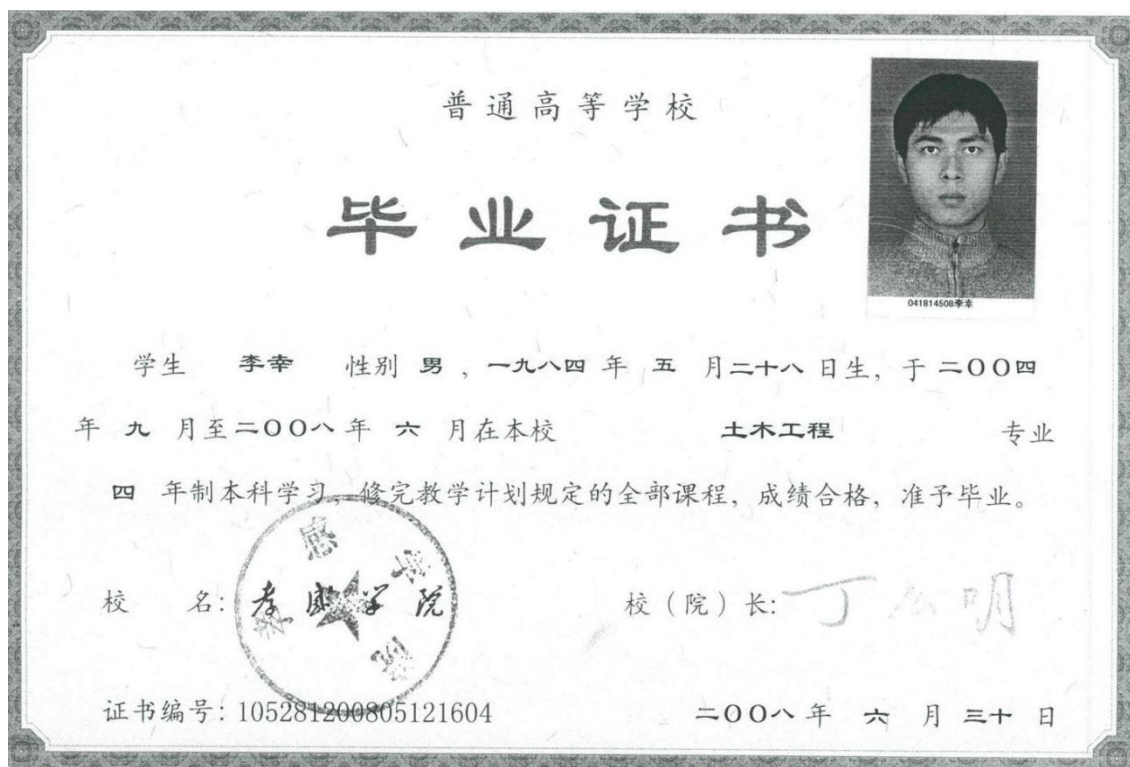 普通高等学校
毕业证书
041814508李幸
学生 李幸 性别 男 ，一九八四 年 五 月二十八 日生，于 二〇〇四
年 九 月至二〇〇八 年 六 月在本校 土木工程 专业
四 年制本科学习，修完教学计划规定的全部课程，成绩合格，准予毕业。
校 名：孝感学院 校（院）长：丁 明
证书编号：105281200805121604 二〇〇八 年 六 月 三十 日